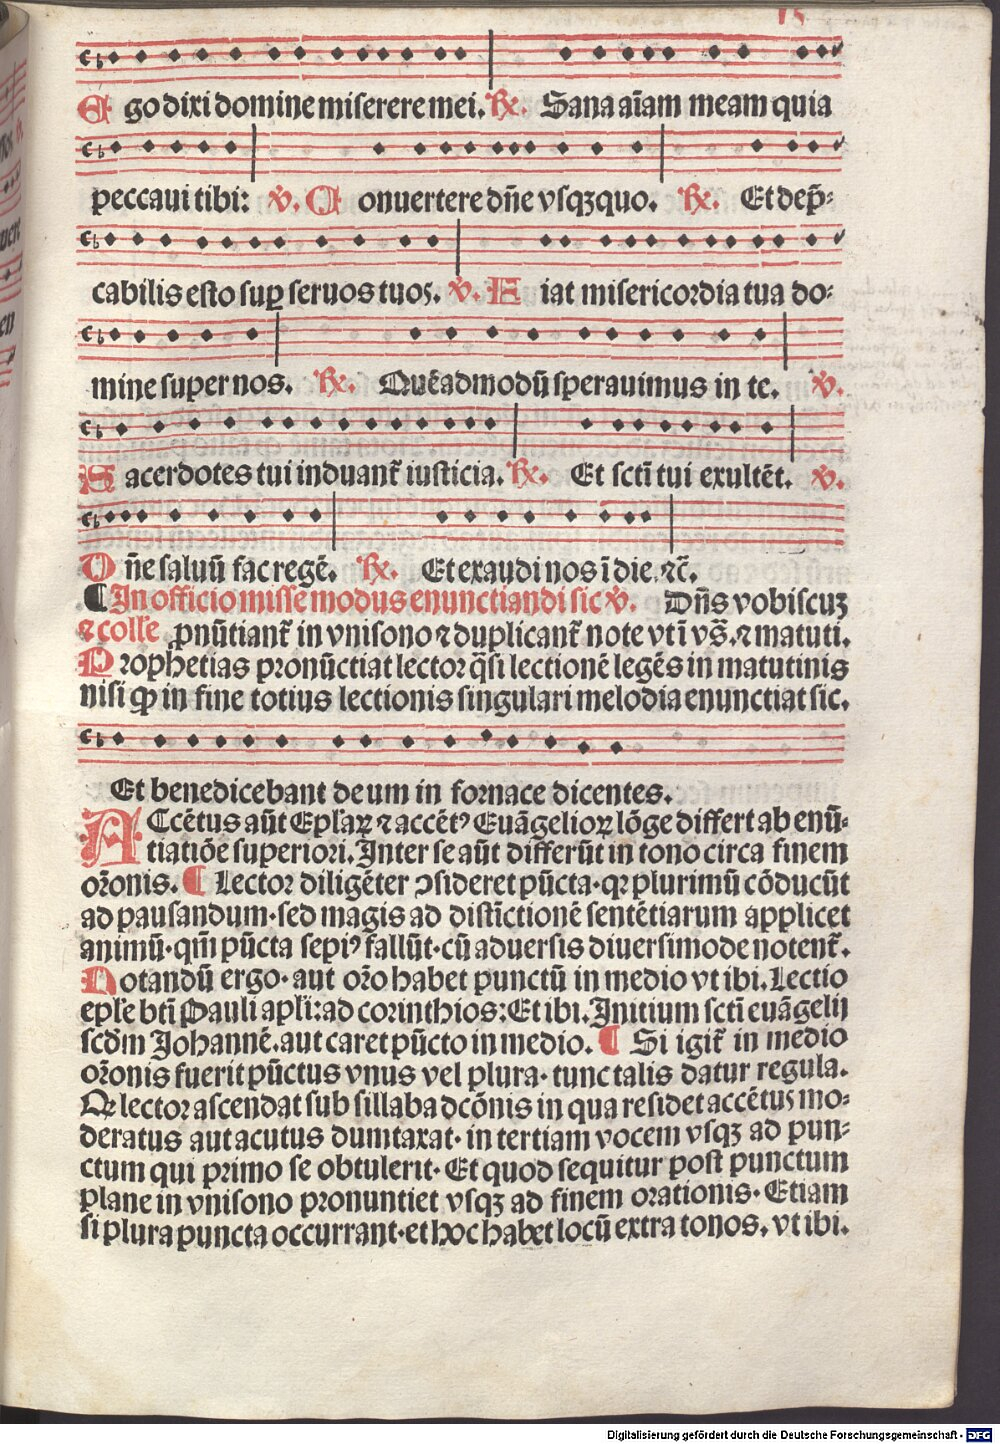 Ego dixi domine miserere mei. ℟. Sana aīam meam quia
peccaui tibi: ℣. Conuertere dn̄e vsqꝫquo. ℟. Et dep̄-
cabilis esto suꝑ seruos tuos. ℣. Fiat misericordia tua do-
mine super nos. ℟. Quēadmodū sperauimus in te. ℣.
Sacerdotes tui induant᷑ iusticia. ℟. Et sct̄i tui exultēt. ℣.
Dn̄e saluū fac regē. ℟. Et exaudi nos ī die. ⁊c̄.
¶ In officio misse modus enunctiandi sic ℣. Dn̄s vobiscuꝫ
⁊ colle p̱nūtiant᷑ in vnisono ⁊ duplicant᷑ note vt ī vs̄. ⁊ matuti.
Prophetias pronūctiat lector q̄si lectionē legēs in matutinis
nisi ꝙ in fine totius lectionis singulari melodia enunctiat sic.
Et benedicebant deum in fornace dicentes.
Accētus aūt Eplaꝝ ⁊ accētꝰ Euāgelioꝝ lōge differt ab enū-
tiatiōe superiori. Inter se aūt differūt in tono circa finem
or̄onis. ¶ Lector diligēter ↄsideret pūcta. qꝛ plurimū cōducūt
ad pausandum. sed magis ad distīctionē sentētiarum applicet
animū. qm̄ pūcta sepiꝰ fallūt. cū aduersis diuersimode notent᷑.
Notandū ergo. aut or̄o habet punctū in medio vt ibi. Lectio
epl̄e bt̄i Pauli apl̄i: ad corinthios: Et ibi. Initium sct̄i euāgelij
scd̄m Johannē. aut caret pūcto in medio. ¶ Si igit᷑ in medio
or̄onis fuerit pūctus vnus vel plura. tunc talis datur regula.
Qꝛ lector ascendat sub sillaba dc̄ōnis in qua residet accētus mo-
deratus aut acutus dumtaxat. in tertiam vocem vsqꝫ ad pun-
ctum qui primo se obtulerit. Et quod sequitur post punctum
plane in vnisono pronuntiet vsqꝫ ad finem orationis. Etiam
si plura puncta occurrant. et hoc habet locū extra tonos. vt ibi.
Digitalisierung gefördert durch die Deutsche Forschungsgemeinschaft - DFG